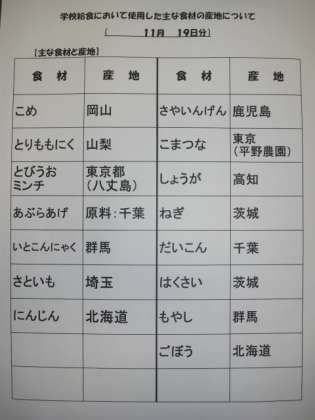 学校給食において使用した主な食材の産地について
(　　　11月　19日分)
[主な食材と産地]
食　材　産　地　食　材　産　地
こめ　岡山　さやいんげん　鹿児島
とりももにく　山梨　こまつな　東京
(平野農園)
とびうお
ミンチ　東京都
(八丈島)　しょうが　高知
あぶらあげ　原料:千葉　ねぎ　茨城
いとこんにゃく　群馬　だいこん　千葉
さといも　埼玉　はくさい　茨城
にんじん　北海道　もやし　群馬
ごぼう　北海道